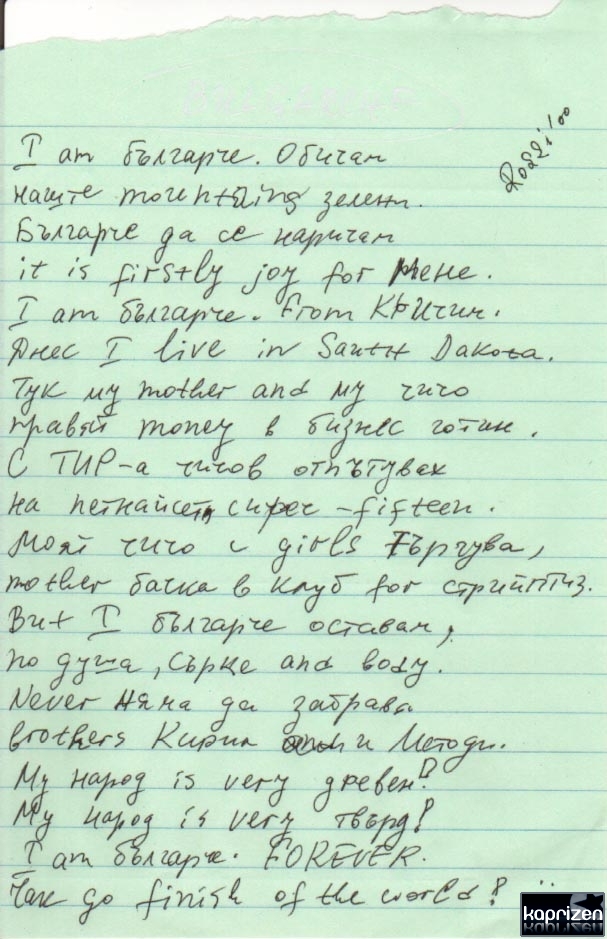 I am българче. Обичам
наште mountaing зелени.
Българче да се наричам
it is firstly joy for мене.
I am българче. From Кричим.
Днес I live in South Dakota.
Тук my mother and my чичо
правят money в бизнес готин.
С ТИР-а чичов отпътувах
на петнайсет, сиреч - fifteen.
Моят чичо с girls търгува,
mother бачка в клуб for стрийптиз.
Вит I българче оставам,
по душа, сърце and body.
Never няма да забрава
brothers Кирил и Методи.
My народ is very древен!
My народ is very твърд!
I am българче. FOREVER.
Чак до finish of the world!
kaprizen